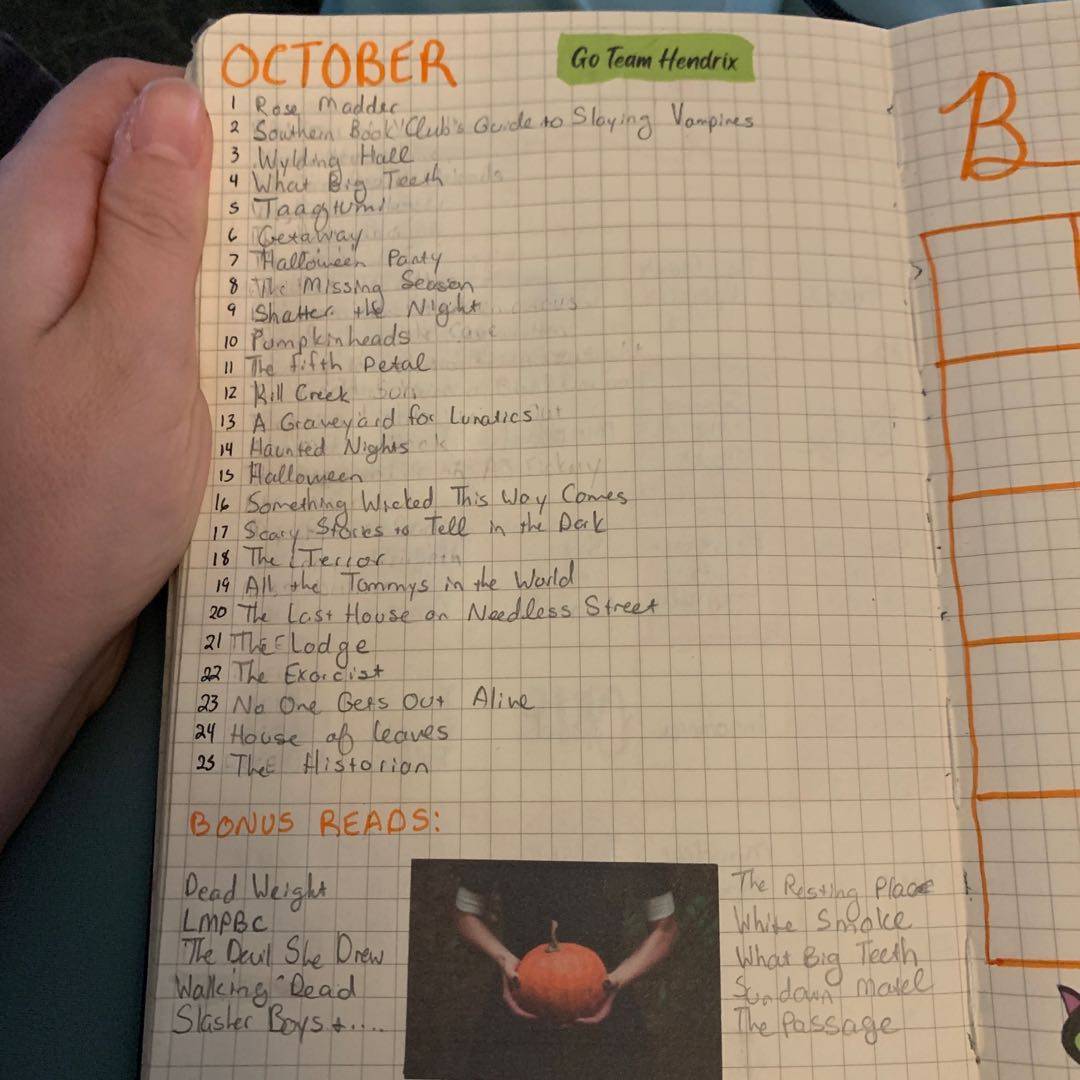 OCTOBER
Go Team Hendrix
1 Rose Madder
2 Southern Book Club's Guide to Slaying Vampires
3 Wylding Hall
4 What Big Teeth
5 Taaqtumi
6 Getaway
7 Halloween Party
8 The Missing Season
9 Shatter the Night
10 Pumpkinheads
11 The Fifth Petal
12 Kill Creek
13 A Graveyard for Lunatics
14 Haunted Nights
15 Halloween
16 Something Wicked This Way Comes
17 Scary Stories to Tell in the Dark
18 The Terror
19 All the Tommys in the World
20 The Last House on Needless Street
21 The Lodge
22 The Exorcist
23 No One Gets Out Alive
24 House of Leaves
25 The Historian
BONUS READS:
Dead Weight
LMPBC
The Devil She Drew
Walking Dead
Slasher Boys +....
The Resting Place
White Smoke
What Big Teeth
Sundown Motel
The Passage
B